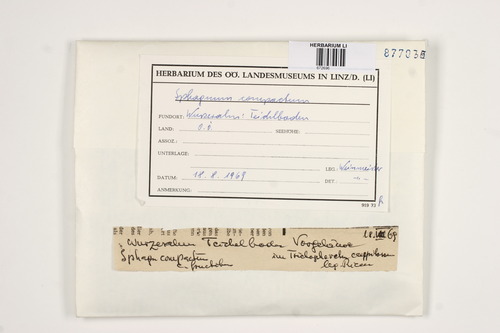 HERBARIUM LI
877036
HERBARIUM DES OÖ. LANDESMUSEUMS IN LINZ/D. (LI)
Sphagnum compactum
FUNDORT: Wurzeralm: Teichlboden
LAND: O.Ö. SEEHÖHE:
ASSOZ.:
UNTERLAGE:
LEG.: Weinmeister
DATUM: 18. 8. 1969 DET.: -"-
ANMERKUNG:
Wurzeralm Teichlboden 18.VIII.69
Sphagn compactum im Trichophoretum
c. fruct